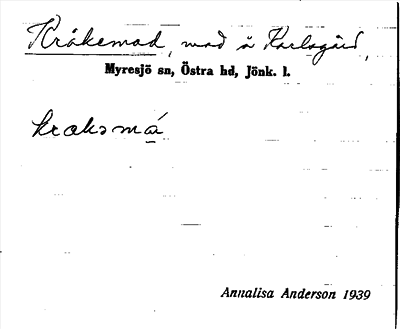 Kråkemad, mad å Karlsgård,
Myresjö sn, Östra hd, Jönk. l.
krakəmá
Annalisa Anderson 1939